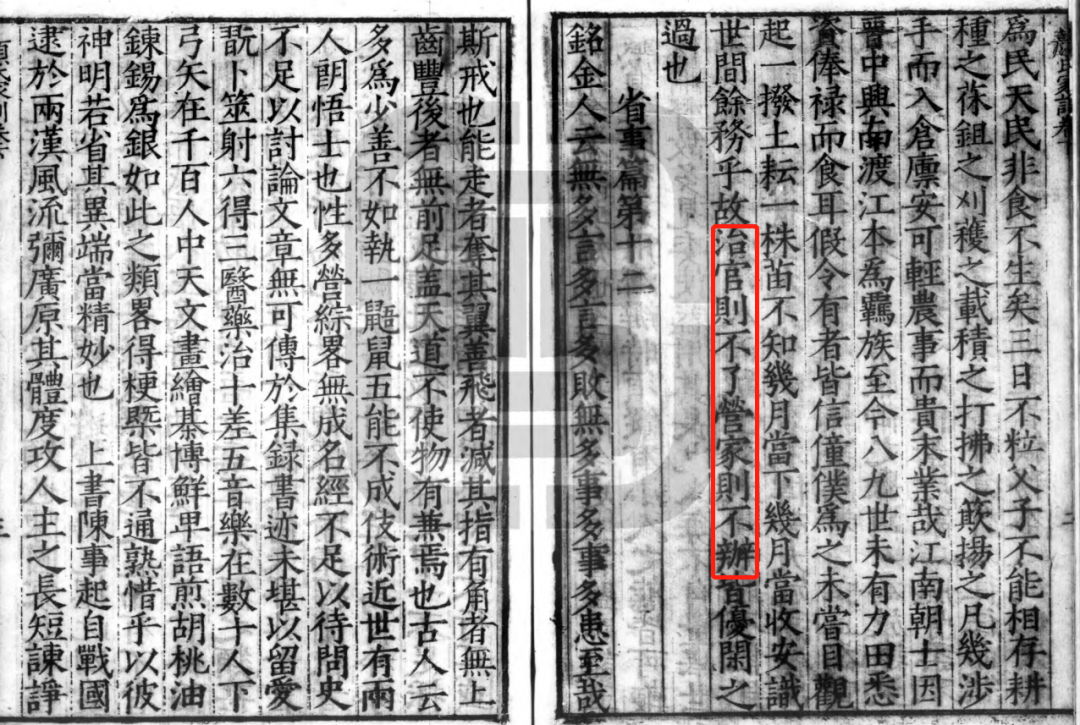 爲民天民非食不生矣三日不粒父子不能相存耕
種之茠鉏之刈穫之載積之打拂之簸揚之凡幾涉
手而入倉廪安可輕農事而貴末業哉江南朝士因
晉中興南渡江本爲羈族至今八九世未有力田悉
資俸禄而食耳假令有者皆信僮僕爲之未嘗目觀
起一撥土耘一株苗不知幾月當下幾月當收安識
世間餘務乎故治官則不了營家則不辦皆優閑之
過也
省事篇第十二
銘金人云無多言多言多敗無多事多事多患至哉
斯戒也能走者奪其翼善飛者減其指有角者無上
齒豐後者無前足盖天道不使物有兼焉也古人云
多爲少善不如執一鼫鼠五能不成伎術近世有兩
人朗悟士也性多營綜畧無成名經不足以待問史
不足以討論文章無可傳於集録書迹未堪以留愛
翫卜筮射六得三醫藥治十差五音樂在數十人下
弓矢在千百人中天文畫繪棊博鮮卑語煎胡桃油
鍊錫爲銀如此之類畧得梗槩皆不通熟惜乎以彼
神明若省其異端當精妙也 上書陳事起自戰國
逮於兩漢風流彌廣原其體度攻人主之長短諫諍